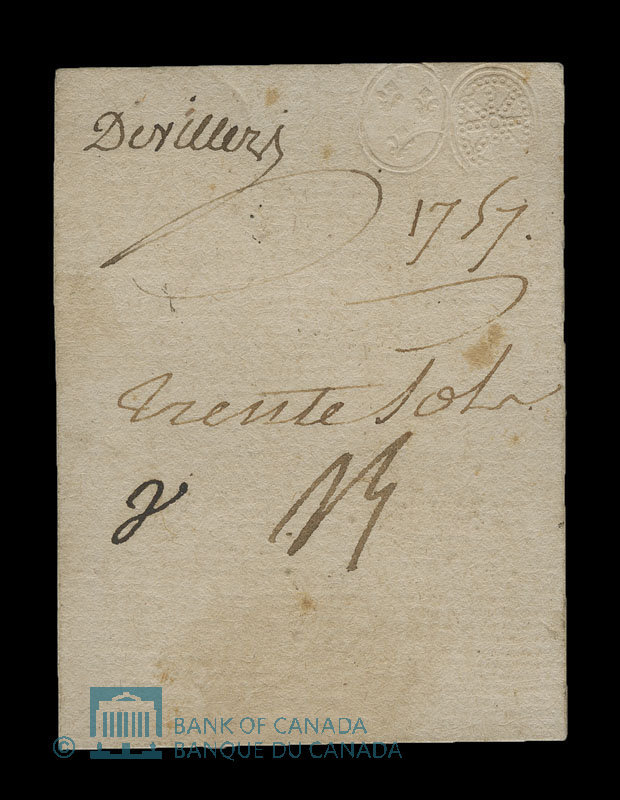 Devillers
1757.
trente Sols
BANK OF CANADA
© BANQUE DU CANADA